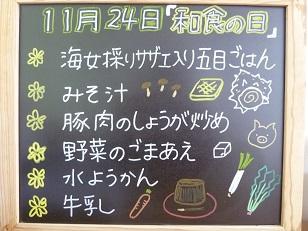 11月24日「和食の日」
海女採りサザエ入り五目ごはん
みそ汁
豚肉のしょうが炒め
野菜のごまあえ
水ようかん
牛乳